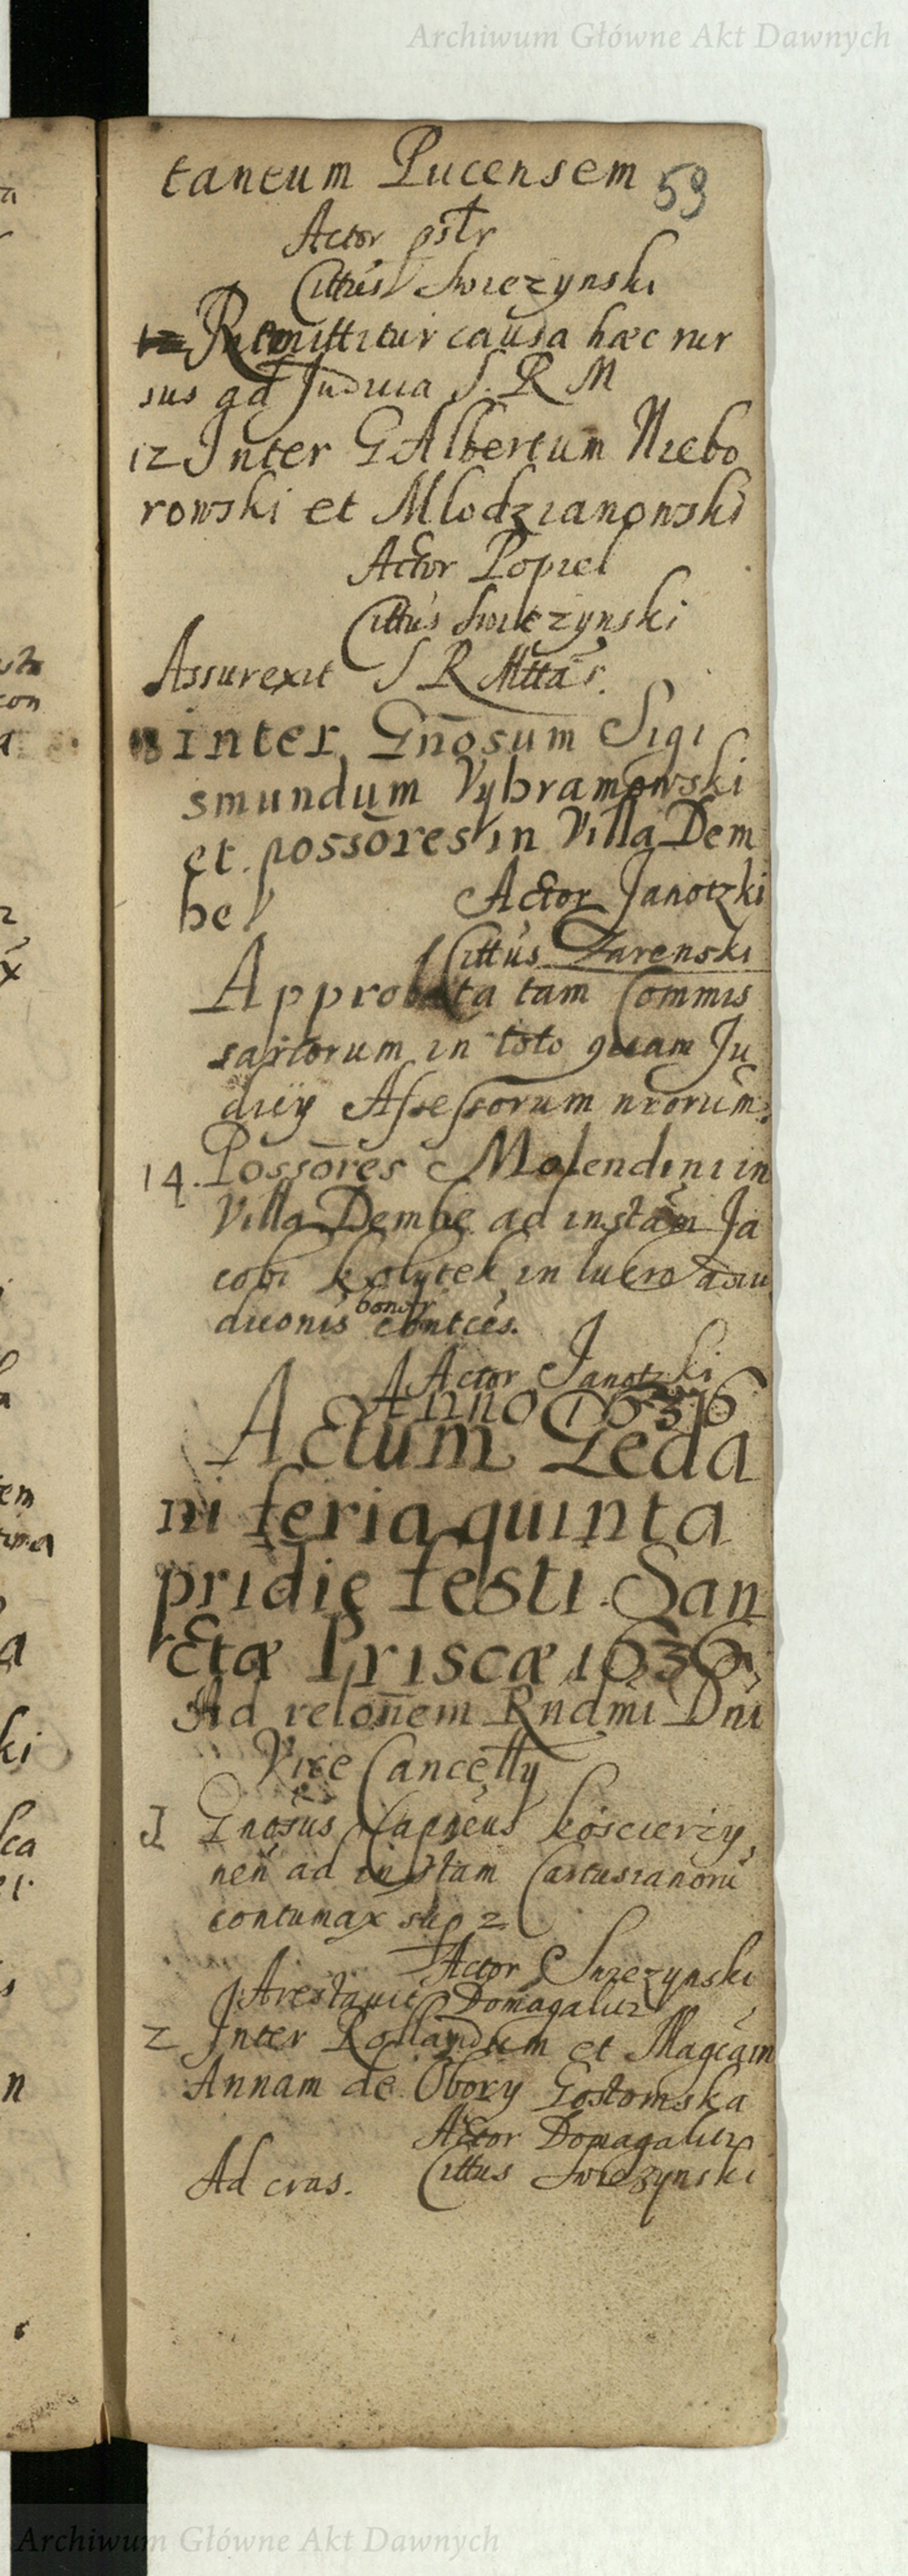 Archiwum Główne Akt Dawnych
tantum Pucensem 59
Actor pstr
Cittus Swiezynski
Remittitur causa hæc rur
sus ad Judicia S. R M
12 Inter G Albertum Niebo
rowski et Mlodzianowski
Actor Popiel
Cittus Swiezynski
Assurexit S R Mttas.
13 inter Gnosum Sigi
smundum Vybramowski
et possores in Villa Dem
be
Actor Janotzki
Cittus Zarenski
Approbata tam Commis
sariorum in toto quam Ju
dicij Assessorum nrorum.
14. Possores Molendini in
Villa Dembe ad instam Ja
cobi Kolytek in lucro adiu
diconis bonor contces.
Actor Janotzki
Anno 1636
Actum Geda
ni feria quinta
pridie festi San
ctæ Priscæ 1636
Ad relonem Rndmi Dni
Vice Cancelly
1 Gnosus Capneus Koscierzy
nen ad instam Cartusianoru
contumax sup 2
Actor Swiezynski
Arestavit Domagalicz
2 Inter Rollandum et Magcam
Annam de Obory Gostomska
Actor Domagalicz
Cittus Swiezynski
Ad cras.
Archiwum Główne Akt Dawnych